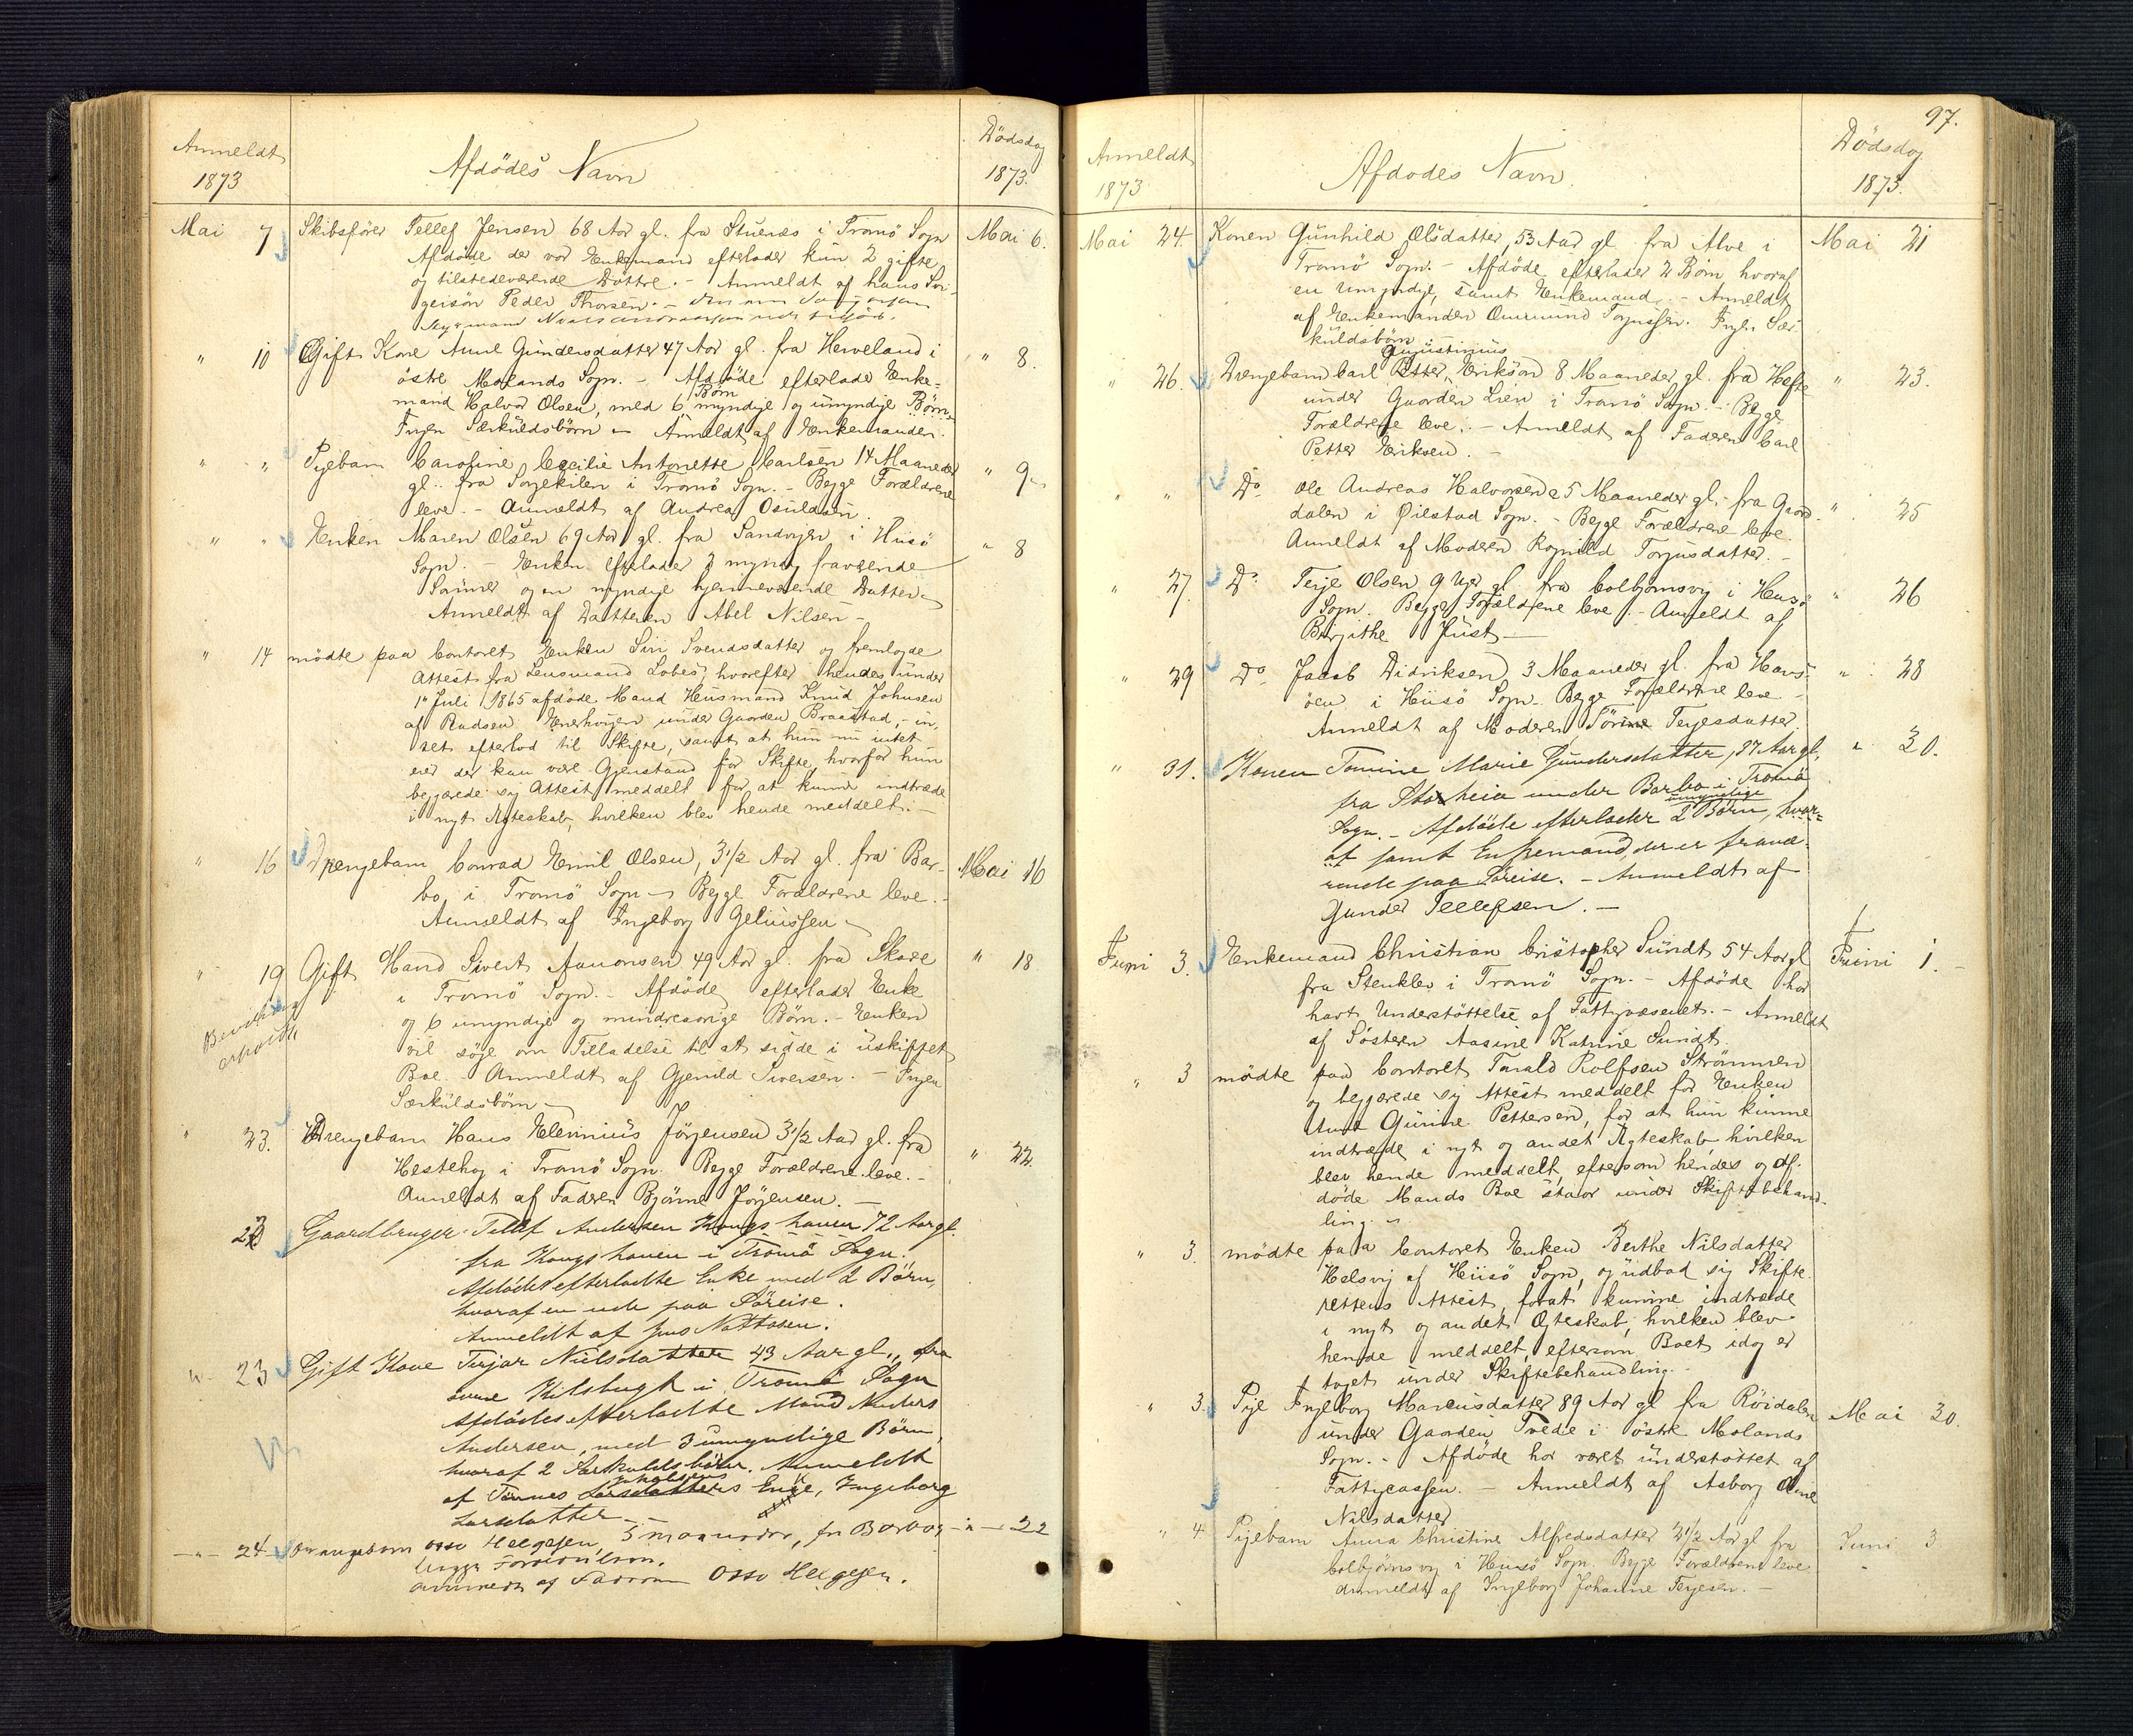 Anmeldt
1873
Afdödes Navn
Dödsdag
1873.
Mai 7 Skibsförer Tellef Jensen 68 Aar gl. fra Stuenæs i Tromö Sogn Mai 6.
Afdöde der var Enkemand efterlader kun 2 gifte
og tilstedeværende Döttre. - Anmeldt af hans Svi-
gersön Peder Thorsen. -
" 10 Gift Kone Anne Gundersdatter 47 Aar gl. fra Herveland i " 8.
östre Molands Sogn. - Afdöde efterlader Enke=
mand Halvor Olsen, med 6 Börn myndige og umyndige Börn.
Ingen Særkuldsbörn - Anmeldt af Enkemanden.
" " Pigebarn Caroline Cecilie Antonette Carlsen 14 Maaneder " 9
gl. fra Sorgekilen i Tromö Sogn. - Begge Forældrene
leve. - Anmeldt af Andrea Osuldsen.
" " Enken Maren Olsen 69 Aar gl. fra Sandvigen i Hisö " 8
Sogn. - Enken efterlader 2 myndig fraværende
Sönner og en myndige hjemmeværende Datter
Anmeldt af Datteren Abel Nilsen -
" 14 mödte paa Contoret Enken Siri Svendsdatter og fremlagde
Attest fra Lensmand Lobes, hvorefter hendes under
1ste Juli 1865 afdöde Mand Husmand Knud Johnsen
af Rudsen Enerhaugen under Gaarden Braastad, - in-
tet efterlod til Skifte, samt at hun nu intet
eier der kan være Gjenstand for Skifte, hvorfor hun
begjærede sig Attest meddelt for at kunne indtræde
i nyt Ægteskab, hvilken blev hende meddelt. -
" 16 Drengebarn Conrad Emil Olsen, 3 1/2 Aar gl. fra Bar- Mai 16
bo i Tromö Sogn - Begge Forældrene leve. -
Anmeldt af Ingeborg Geliussen
" 19 Gift Mand Sivert Aanonsen 49 Aar gl. fra Skare " 18
i Tromö Sogn. - Afdöde efterlader Enke
og 6 umyndige og mindreaarige Börn. - Enken
vil söge om Tilladelse til at sidde i uskiftet
Boe. Anmeldt af Gjeruld Siversen. - Ingen
Særkuldsbörn -
" 23. Drengebarn Hans Elenius Jörgensen 3 1/2 Aar gl. fra " 22.
Hestehag i Tromö Sogn. Begge Forældrene leve. -
Anmeldt af Faderen Bjarne Jörgensen. -
23 Gaardbruger Tellef Andersen Kongshavn 72 Aar gl.
fra Kongshavn i Tromö Sogn.
Afdöde efterladte Enke med 2 Börn,
hvoraf en ude paa Söreise.
Anmeldt af Jens Nattosen.
" 23 Gift Kone Terjar Nielsdatter 43 Aar gl., fra
Kilsbugt i Tromö Sogn
Afdödes efterladte Mand Anders
Andersen, med 3 umyndige Börn,
hvoraf 2 Særkuldsbörn. Anmeldt
af Tönnes Enke, Ingeborg
Larsdatter
" 24 Drengebarn Osse Helgesen 5 maaneder, fra Barbo " 22
begge Forældrene.
anmeldt af Faderen Osse Helgesen.
97.
Anmeldt
1873
Afdödes Navn
Dödsdag
1873.
Mai 24. Konen Gunhild Olsdatter, 53 Aar gl. fra Alve i Mai 21
Tromö Sogn. - Afdöde efterlader 2 Börn hvoraf
en umyndig, samt Enkemand. - Anmeldt
af Enkemanden Omund Torjussen. Ingen Sær-
kuldsbörn.
" 26. Drengebarn Carl Petter Gujustinius Erikson 8 Maaneder gl. fra Hefte " 23.
under Gaarden Lien i Tromö Sogn. - Begge
Forældrene leve. - Anmeldt af Faderen Carl
Petter Eriksen. -
" " Do Ole Andreas Halvorsen 5 Maaneder gl. fra Grav- " 25
dalen i Öiestad Sogn. - Begge Forældrene leve.
Anmeldt af Moderen Rognild Torjusdatter. -
" 27. Do Terje Olsen 9 Uger gl. fra Colbjörnsvig i Hisö " 26
Sogn. Begge Forældrene leve. - Anmeldt af
Birgithe Just -
" 29 Do Jacob Didriksen 3 Maaneder gl. fra Havs- " 28
öen i Hisö Sogn. Begge Forældrene leve -
Anmeldt af Moderen Sörine Terjesdatter.
" 31. Konen Tomine Marie Gundersdatter, 27 Aar gl. " 30.
fra Storheia under Barbo i Tromö
Sogn. - Afdöde efterlader 2 umyndige Börn, hvor=
af samt Enkemand, der er fravæ-
rende paa Söreise. - Anmeldt af
Gunder Tellefsen. -
Juni 3. Enkemand Christian Cristopher Sundt 54 Aar gl Juni 1. -
fra Stenklev i Tromö Sogn. - Afdöde har
havt Understöttelse af Fattigvæsenet. - Anmeldt
af Sösteren Aasine Katrine Sundt.
" 3 mödte paa Contoret Tarald Rolfsen Strömmen
og begjærede sig Attest meddelt for Enken
Anne Gurine Pettersen, for at hun kunne
indtræde i nyt og andet Ægteskab hvilken
blev hende meddelt, eftersom hendes og af-
döde Mands Boe staar under Skiftebehand-
ling. -
" 3. mödte paa Contoret Enken Berthe Nilsdatter
Helsvig af Hisö Sogn, og udbad sig Skifte-
rettens Attest, forat kunne indtræde
i nyt og andet Ægteskab, hvilken blev
hende meddelt, eftersom Boet idag er
taget under Skiftebehandling. -
" 3. Pige Ingeborg Marcusdatter 89 Aar gl fra Röidalen Mai 30.
under Gaarden Tvede i östre Molands
Sogn. - Afdöde har været understöttet af
Fattigcassen. - Anmeldt af Asborg Oline
Nilsdatter
" 4. Pigebarn Anna Christine Alfredsdatter 2 1/2 Aar gl fra Juni 3
Colbjörnsvig i Hisö Sogn. Begge Forældrene leve
Anmeldt af Ingeborg Johanne Terjesen. -